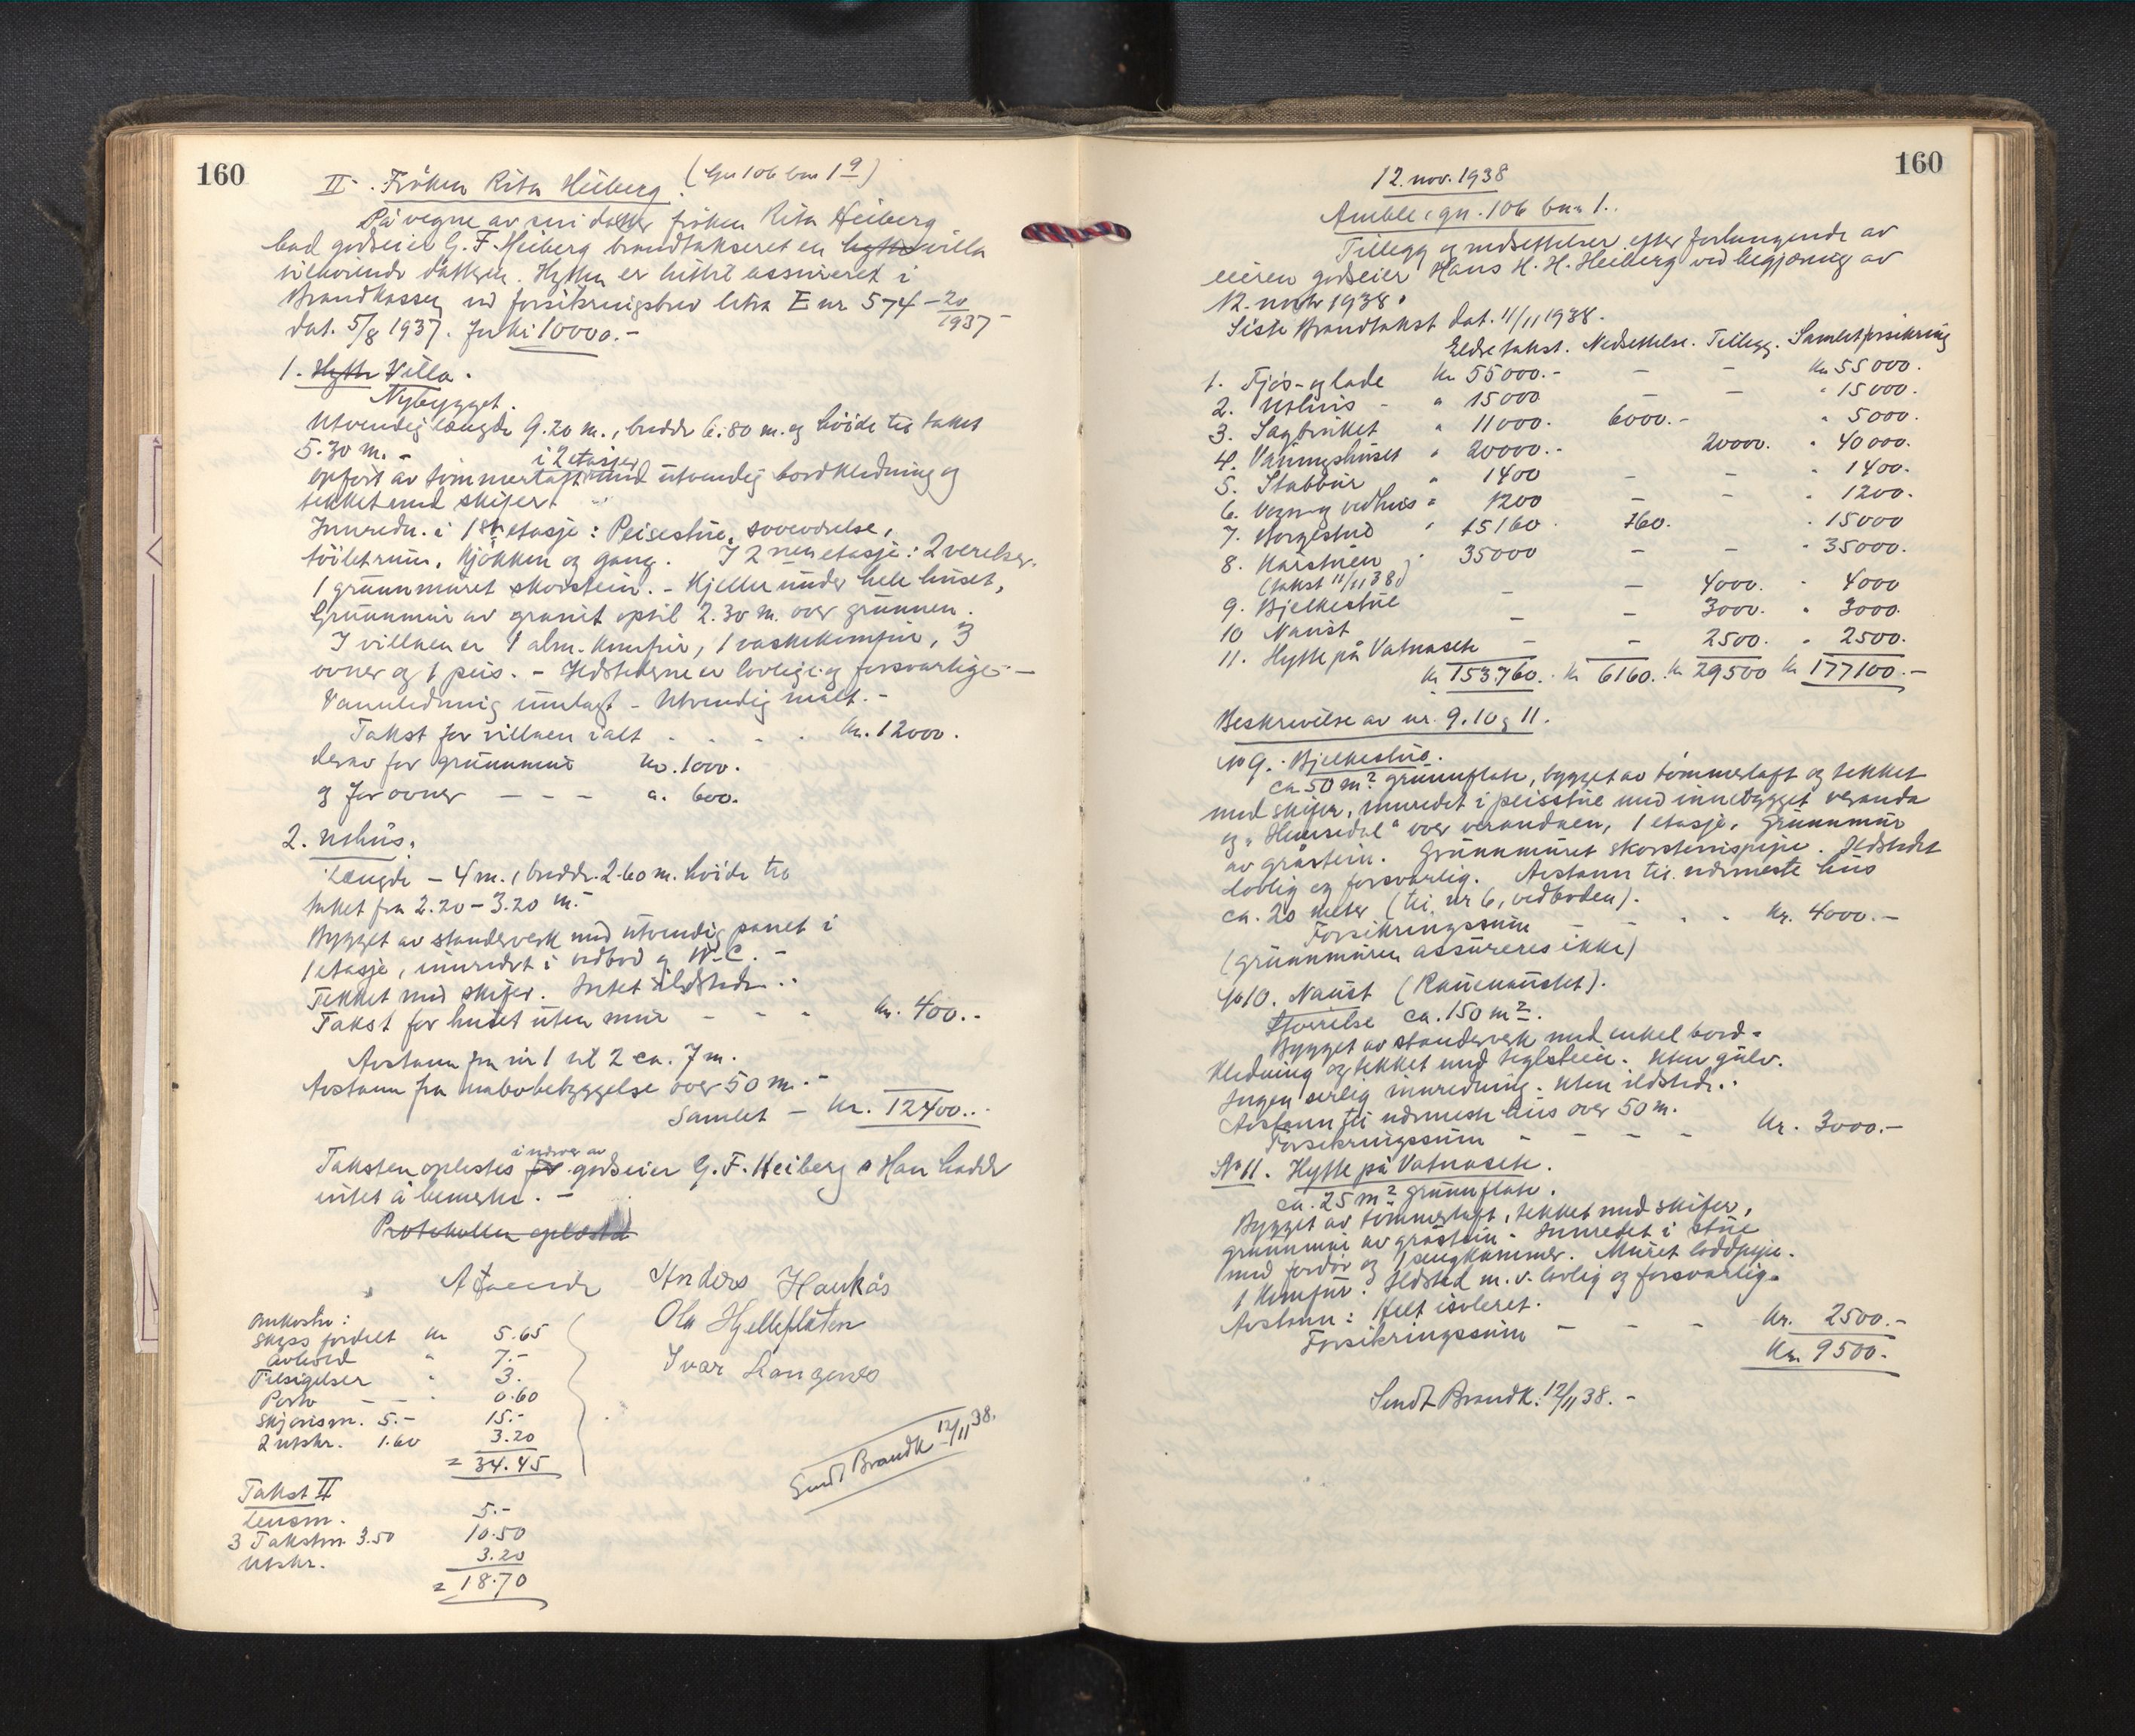 160
II. Fröken Rita Heiberg. (Gn 106 bn 19)
På vegne av sin datter fröken Rita Heiberg
bad godseier G. F. Heiberg brandtakseret en hytte villa
tilhörende datteren. Hytten er hittil assureret i
Brandkassen ved forsikringsbrev litra E nr 574 - 20/1937
dat. 5/8 1937. for kr 10000.-
1. Hytte Villa.
Nybygget.
Utvendig længde 9.20 m., bredde 6.80 m. og höide til taket
5.30 m. -
i 2 etasjer
opfört av tömmerlaft med utvendig bordkledning og
tekket med skifer.
Innredn. i 1ste etasje: Peisestue, soveværelse,
töiletrum, kjökken og gang. I 2nen etasje: 2 verelser.
1 grunnmuret skorstein. - Kjeller under hele huset,
Grunnmur av granit optil 2.30 m. over grunnen.
I villaen er 1 alm. komfur, 1 vaskekomfur, 3
ovner og 1 peis. - Ildstederne er lovlige og forsvarlige. -
Vannledning innlagt - Utvendig malt. -
Takst for villaen ialt - - - - kr. 12000.
derav for grunnmur kr. 1000.
og for ovner - - - a. 600.
2. Uthus.
Længde - 4 m., bredde 2.60 m. höide til
taket fra 2.20 - 3.20 m. -
Bygget av standerverk med utvendig panel i
1 etasje, innredet i vedbod og W.C. -
Tekket med skifer. Intet ildsted. -
Takst for huset uten mur - - - kr. 400.-
Avstann fra nr 1 til 2 ca. 7 m.
Avstann fra nabobebyggelse over 50 m. -
Samlet - kr. 12400..
i nærver av
Taksten oplestes for godseier G. F. Heiberg. Han hadde
intet å bemerke. -
Protokollen oplest
Anders Haukås
Ola Hjelleflåten
Ivar
Omkostn:
Skyss fordelt kr 5.65
Avhold " 7.-
Tilsigelser " 3.
Porto - - " 0.60
Skjönsm. 5.- 15.-
2 utskr. 1.60 3.20
= 34.45
Sendt Brandk 12/11 38.
Takst II
Lensm. 5.-
3 Takstm. 3.50 10.50
Utskr. 3.20
= 18.70
160
12. nov. 1938
Amble, gn. 106 bn. 1.
Tillegg og nedsettelser efter forlangende av
eieren godseier Hans H. H. Heiberg ved begjæring av
12. novbr 1938.
Siste Brandtakst dat. 11/11 1938.
Eldre takst. Nedsettelse. Tillegg. Samlet forsikring
1. Fjös- og lade kr 55000.- - - kr 55000.
2. Uthus - " 15000 - - " 15000.
3. Sagbruket " 11000. 6000.- " 5000.
4. Våningshuset " 20000.- 20000. " 40000.
5. Stabbur " 1400 - - " 1400.
6. Vogn- og vedhus " 1200 - - " 1200.
7. Borgestue " 15160. 160. " 15000
8. Karstuen " 35000 - - " 35000.
(takst 11/11 38)
9. Bjelkestue - - 4000. " 4000
10 Naust - - 3000. " 3000.
11. Hytte på Vatnasete - - 2500. " 2500.
kr 153760. kr 6160. kr 29500 kr 177100.-
Beskrivelse av nr. 9. 10 og 11.
No 9. Bjelkestue.
ca. 50 m² grunnflate, bygget av tömmerlaft og tekket
med skifer, innredet i peisstue med innebygget veranda
og "Hemsedal" over verandaen, 1 etasje. Grunnmur
av gråstein. Grunnmuret skorsteinspipe. Ildstedet
lovlig og forsvarlig. Avstann til nærmeste hus
ca. 20 meter (til nr 6, vedboden).
Forsikringssum - - - - kr. 4000.-
(grunnmuren assureres ikke)
No 10. Naust
Störrelse ca. 150 m².
Bygget av standerverk med enkel bord-
kledning og tekket med teglstein. Uten gulv.
Ingen serlig innredning. Uten ildsted. -
Avstann til nærmeste hus over 50 m.
Forsikringssum - - - - kr. 3000.-
No 11. Hytte på Vatnasete.
ca. 25 m² grunnflate.
Bygget av tömmerlaft, tekket med skifer,
grunnmur av gråstein. Innredet i stue
med fordör og 1 sengkammer. Muret loddpipe.
1 komfur. Ildsted m. v. lovlig og forsvarlig.
Avstann: Helt isoleret.
Forsikringssum - - - kr. 2500.-
kr. 9500.-
Sendt Brandk. 12/11 38. -